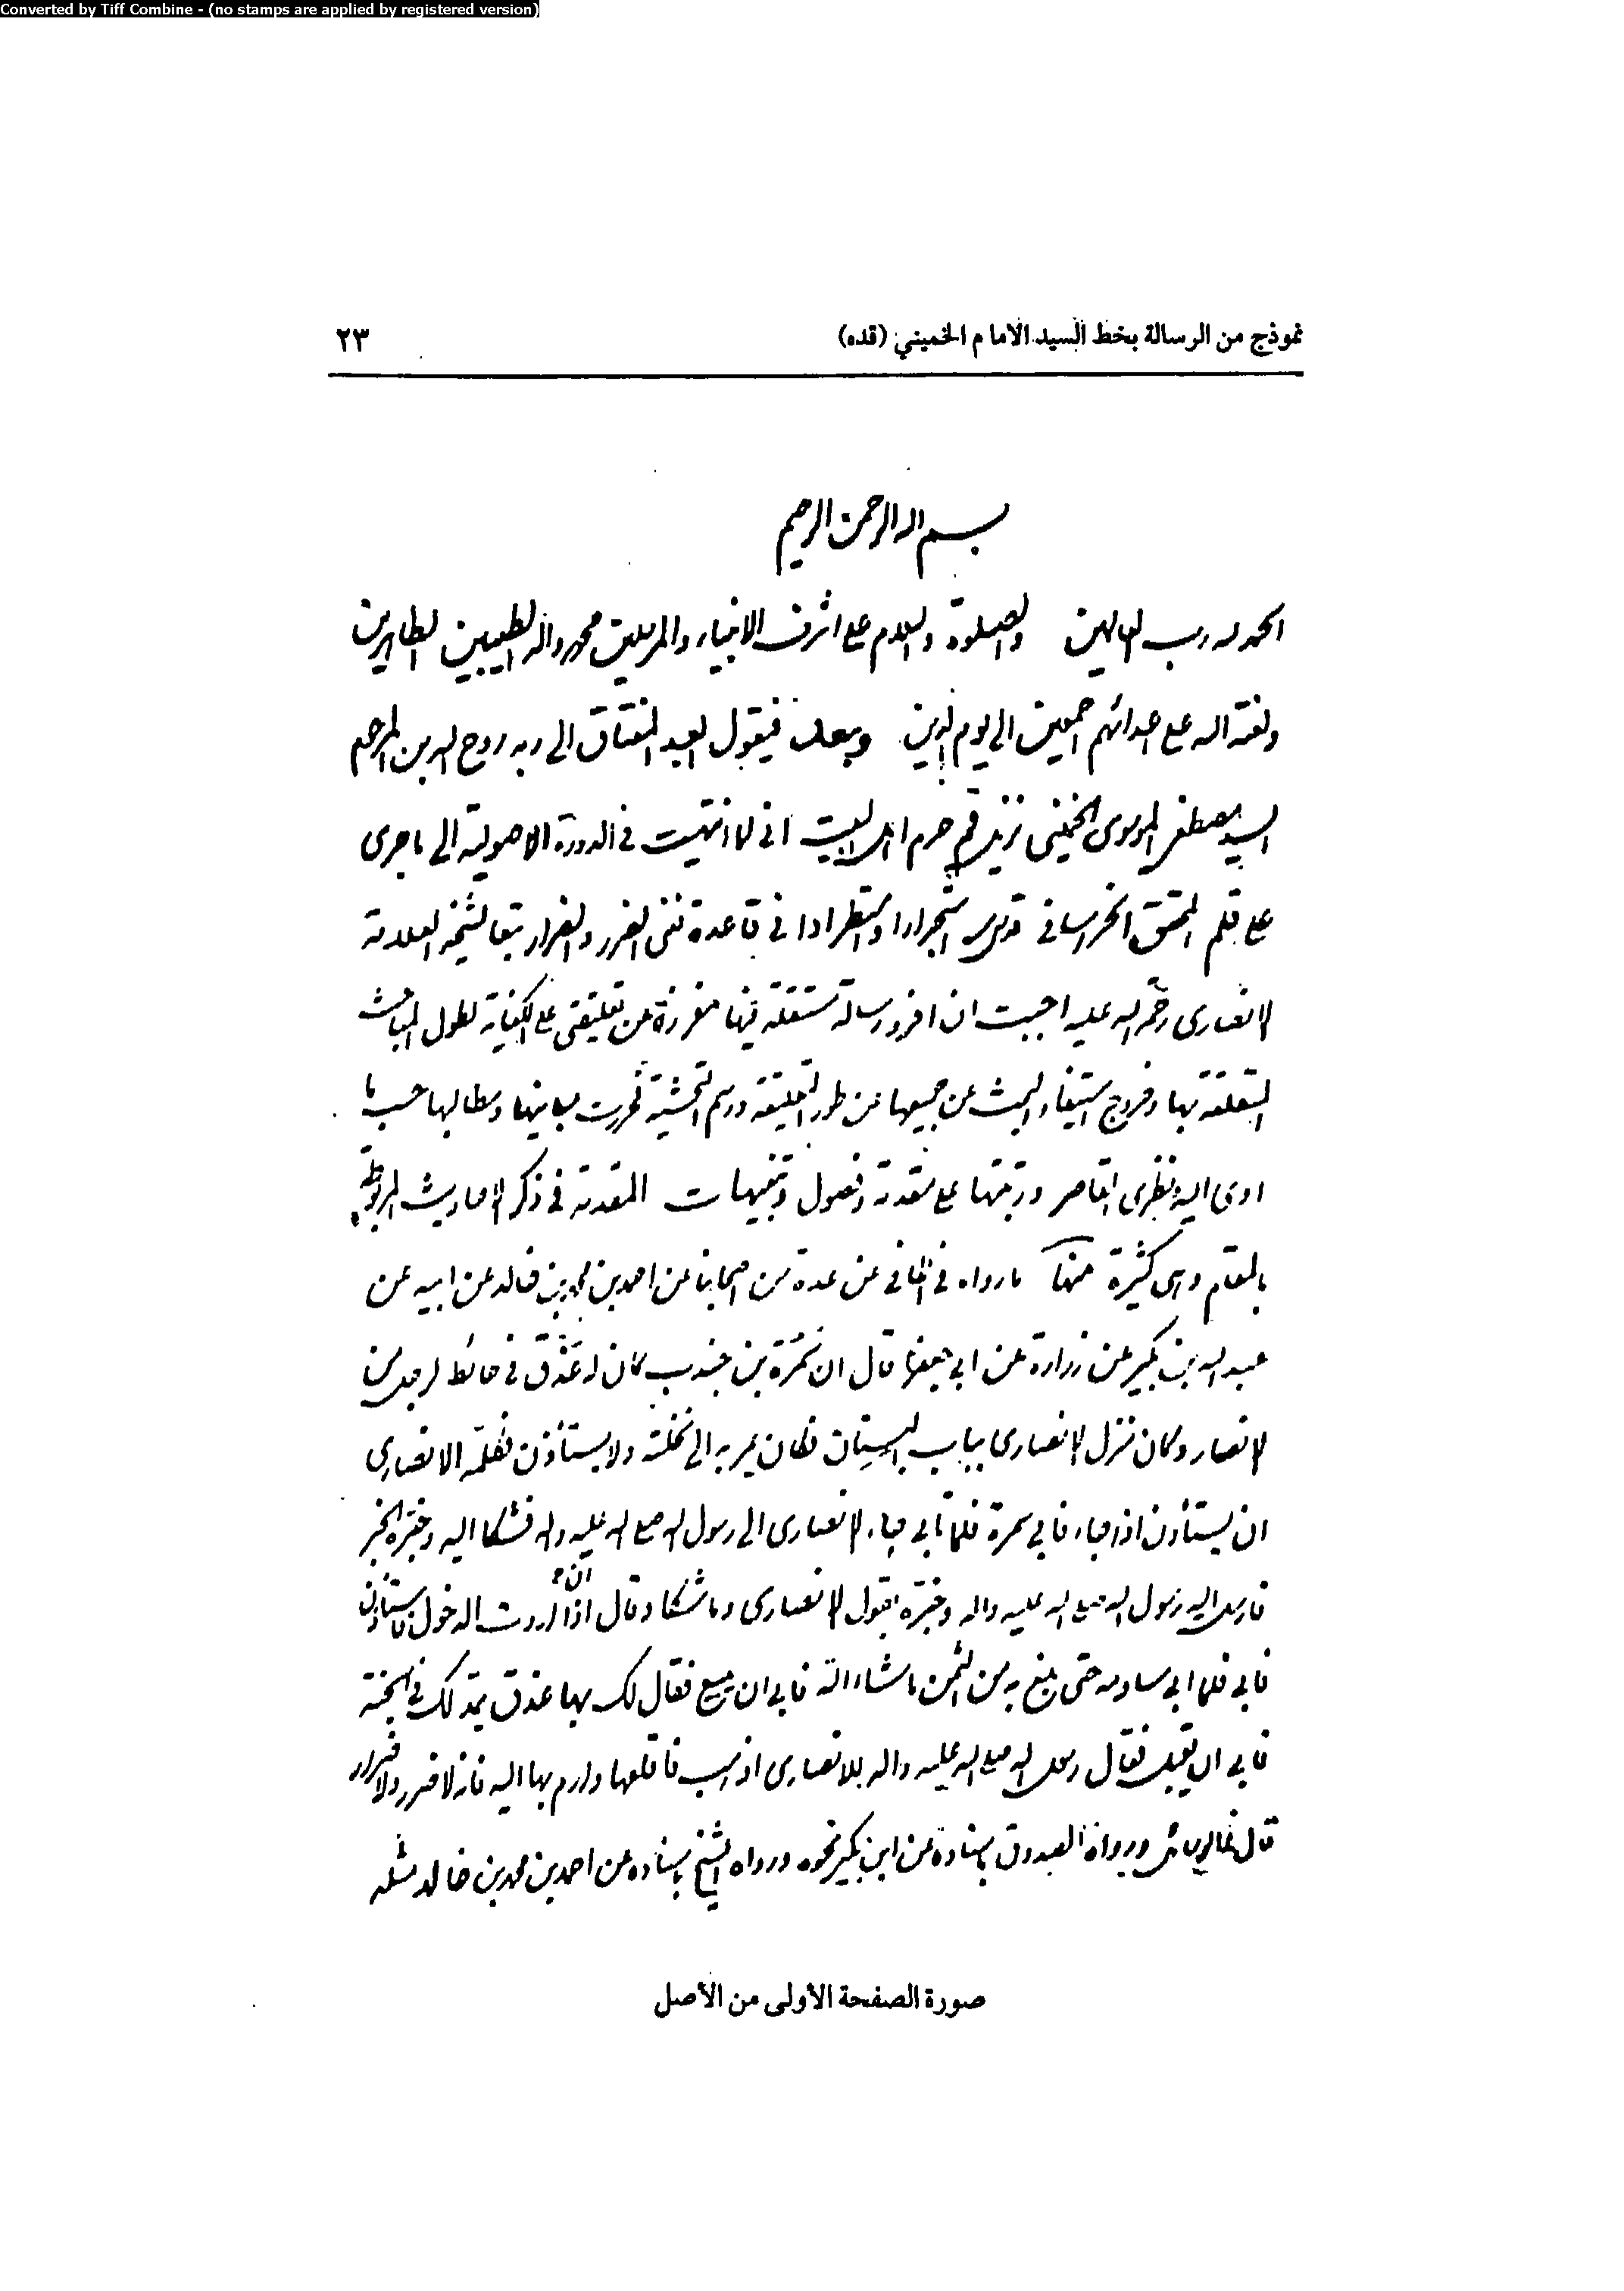 Converted by Tiff Combine - (no stamps are applied by registered version)
نموذج من الرسالة بخط السيد الامام الخميني (قده) ٢٣
بسم الله الرحمن الرحيم
الحمد لله رب العالمين والصلوة والسلام على اشرف الانبياء والمرسلين محمد وآله الطيبين الطاهرين
ولعنة الله على اعدائهم اجمعين الى يوم الدين وبعد فيقول العبد المفتاق الى ربه روح الله بن المرحوم
السيد مصطفى الموسوى الخمينى نزيل قم حرم اهل البيت انى لما انتهيت فى الدورة الاصولية الى ما جرى
على قلم المحقق الخراسانى قدس سره استجرارا واستطرادا فى قاعدة نفى الضرر والضرار تبعا لشيخه العلامة
الانصارى رحمة الله عليه احببت ان افرد رسالة مستقلة فيها مفرزة عن تعليقتى على الكفاية لطول المباحث
المتعلقة بها وخروج استيفاء البحث عن جميعها عن طور التعليقة ورسم التحشية فحررت مبانيها ومطالبها حسب ما
ادى اليه نظرى القاصر ورتبتها على مقدمة وفصول وتنبيهات المقدمة فى ذكر الاحاديث المربوطة
بالمقام وهى كثيرة منها ما رواه فى الكافى عن عدة من اصحابنا عن احمد بن محمد بن خالد عن ابيه عن
عبد الله بن بكير عن زرارة عن ابى جعفر قال ان سمرة بن جندب كان له عذق فى حائط لرجل من
الانصار وكان منزل الانصارى بباب البستان فكان يمر به الى نخلته ولا يستأذن فكلمه الانصارى
ان يستأذن اذا جاء فابى سمرة فلما تأبى جاء الانصارى الى رسول الله صلى الله عليه وآله فشكا اليه وخبره الخبر
فارسل اليه رسول الله صلى الله عليه واله وخبره بقول الانصارى وما شكا وقال ان اذا اردت الدخول فاستأذن
فابى فلما ابى ساومه حتى بلغ به من الثمن ما شاء الله فابى ان يبيع فقال لك بها عذق يمد لك فى الجنة
فابى ان يقبل فقال رسول الله صلى الله عليه واله للانصارى اذهب فاقلعها وارم بها اليه فانه لا ضرر ولا ضرار
قال فى الوسائل ورواه الصدوق باسناده عن ابن بكير نحوه ورواه الشيخ باسناده عن احمد بن محمد بن خالد مثله
صورة الصفحة الأولى من الأصل